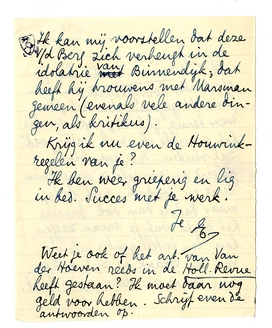 Ik kan mij voorstellen dat deze
v/d Berg zich verheugt in de
idolatrie van Binnendijk, dat
heeft hij trouwens met Marsman
gemeen (evenals vele andere din-
gen, als kritikus).
Krijg ik nu even de Houwink-
regelen van je?
Ik ben weer grieperig en lig
in bed. Succes met je werk.
Je E
Weet je ook of het art. van Van
der Hoeven reeds in de Holl. Revue
heeft gestaan? Ik moet daar nog
geld voor hebben. Schrijf even de
antwoorden op.